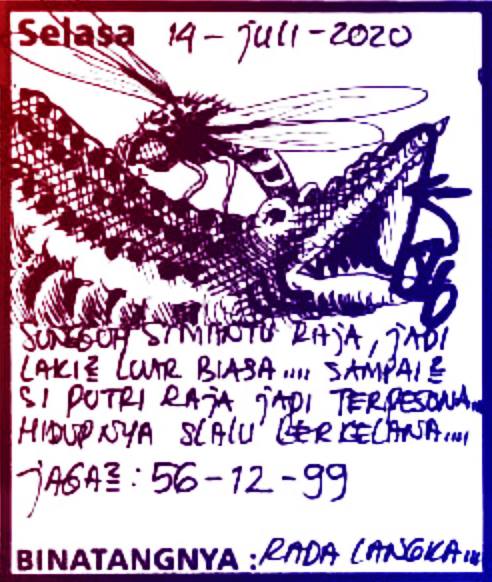 Selasa 14 - juli - 2020
SUNGGUH SIMANTU RAJA, jADI
LAKI2 LUAR BIASA.... SAMPAI2
SI PUTRI RAJA jADI TERPESONA...
HIDUPNYA SLALU BERKELANA....
jAGA2 : 56 - 12 - 99
BINATANGNYA : RADA LANGKA...